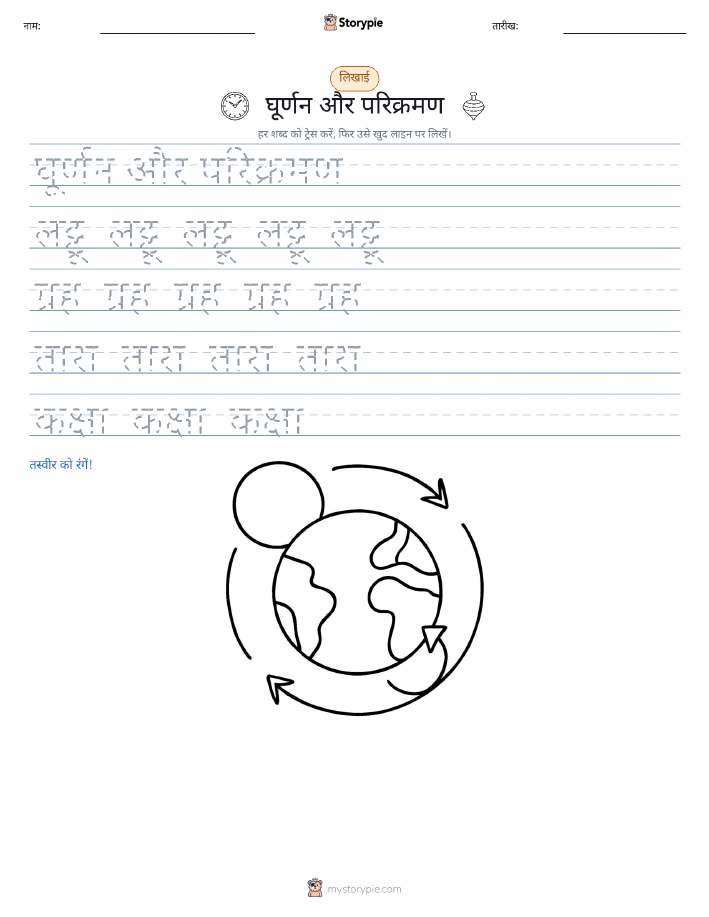 नाम: Storypie तारीख:
लिखाई
घूर्णन और परिक्रमण
हर शब्द को ट्रेस करें, फिर उसे खुद लाइन पर लिखें।
घूर्णन और परिक्रमण
लट्टू लट्टू लट्टू लट्टू लट्टू
ग्रह ग्रह ग्रह ग्रह ग्रह
तारा तारा तारा तारा
कक्षा कक्षा कक्षा
तस्वीर को रंगें!
mystorypie.com